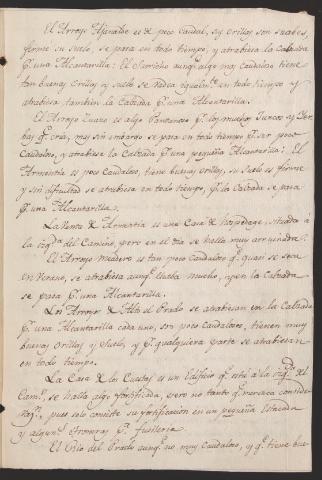 El Arroyo Ajarabe es de poco caudal, sus orillas son suabes,
firme su suelo, se pasa en todo tiempo, y atrabiesa la Calzada
pr. una Alcantarilla: El Sarricho aunqe. algo mas caudaloso tiene
tan buenas orillas y suelo se vadea igualmte. en todo tiempo y
atrabiesa tambien la Calzada pr. una Alcantarilla.
El Arroyo Zuazo es algo Pantanoso pr. los muchos Juncos y Yer-
bas qe. cria, mas sin embargo se pasa en todo tiempo pr. ser poco
caudaloso, y atrabiesa la Calzada pr. una pequeña Alcantarilla: El
Armentia es poco caudaloso, tiene buenas orillas, su suelo es firme
y sin dificultad se atrabiesa en todo tiempo, pr. la Calzada se pasa
pr. una Alcantarilla.
La Venta de Armentia es una Casa de hospedage, situada a
la izqda. del Camino, pero en el dia se halla muy arruinada.
El Arroyo Madero es tan poco caudaloso qe. quasi se seca
en Verano, se atrabiesa aunqe. lluba mucho, y en la Calzada
se pasa pr. una Alcantarilla.
Los Arroyos de Alto el Prado se atrabiesan en la Calzada
pr. una Alcantarilla cada uno, son poco caudalosos, tienen muy
buenas orillas y suelo, y pr. qualquiera parte se atrabiesan
en todo tiempo.
La Casa de los Cuetos es un Edificio qe. está a la izqda. del
Camo., se halla algo fortificada, pero no tanto qe. merezca conside-
raz.n, pues solo consiste su fortificacion en una pequeña Estacada
y algunas troneras pa. fusileria.
El Rio del Prado aunqe. no muy caudaloso, y qe. tiene bue-